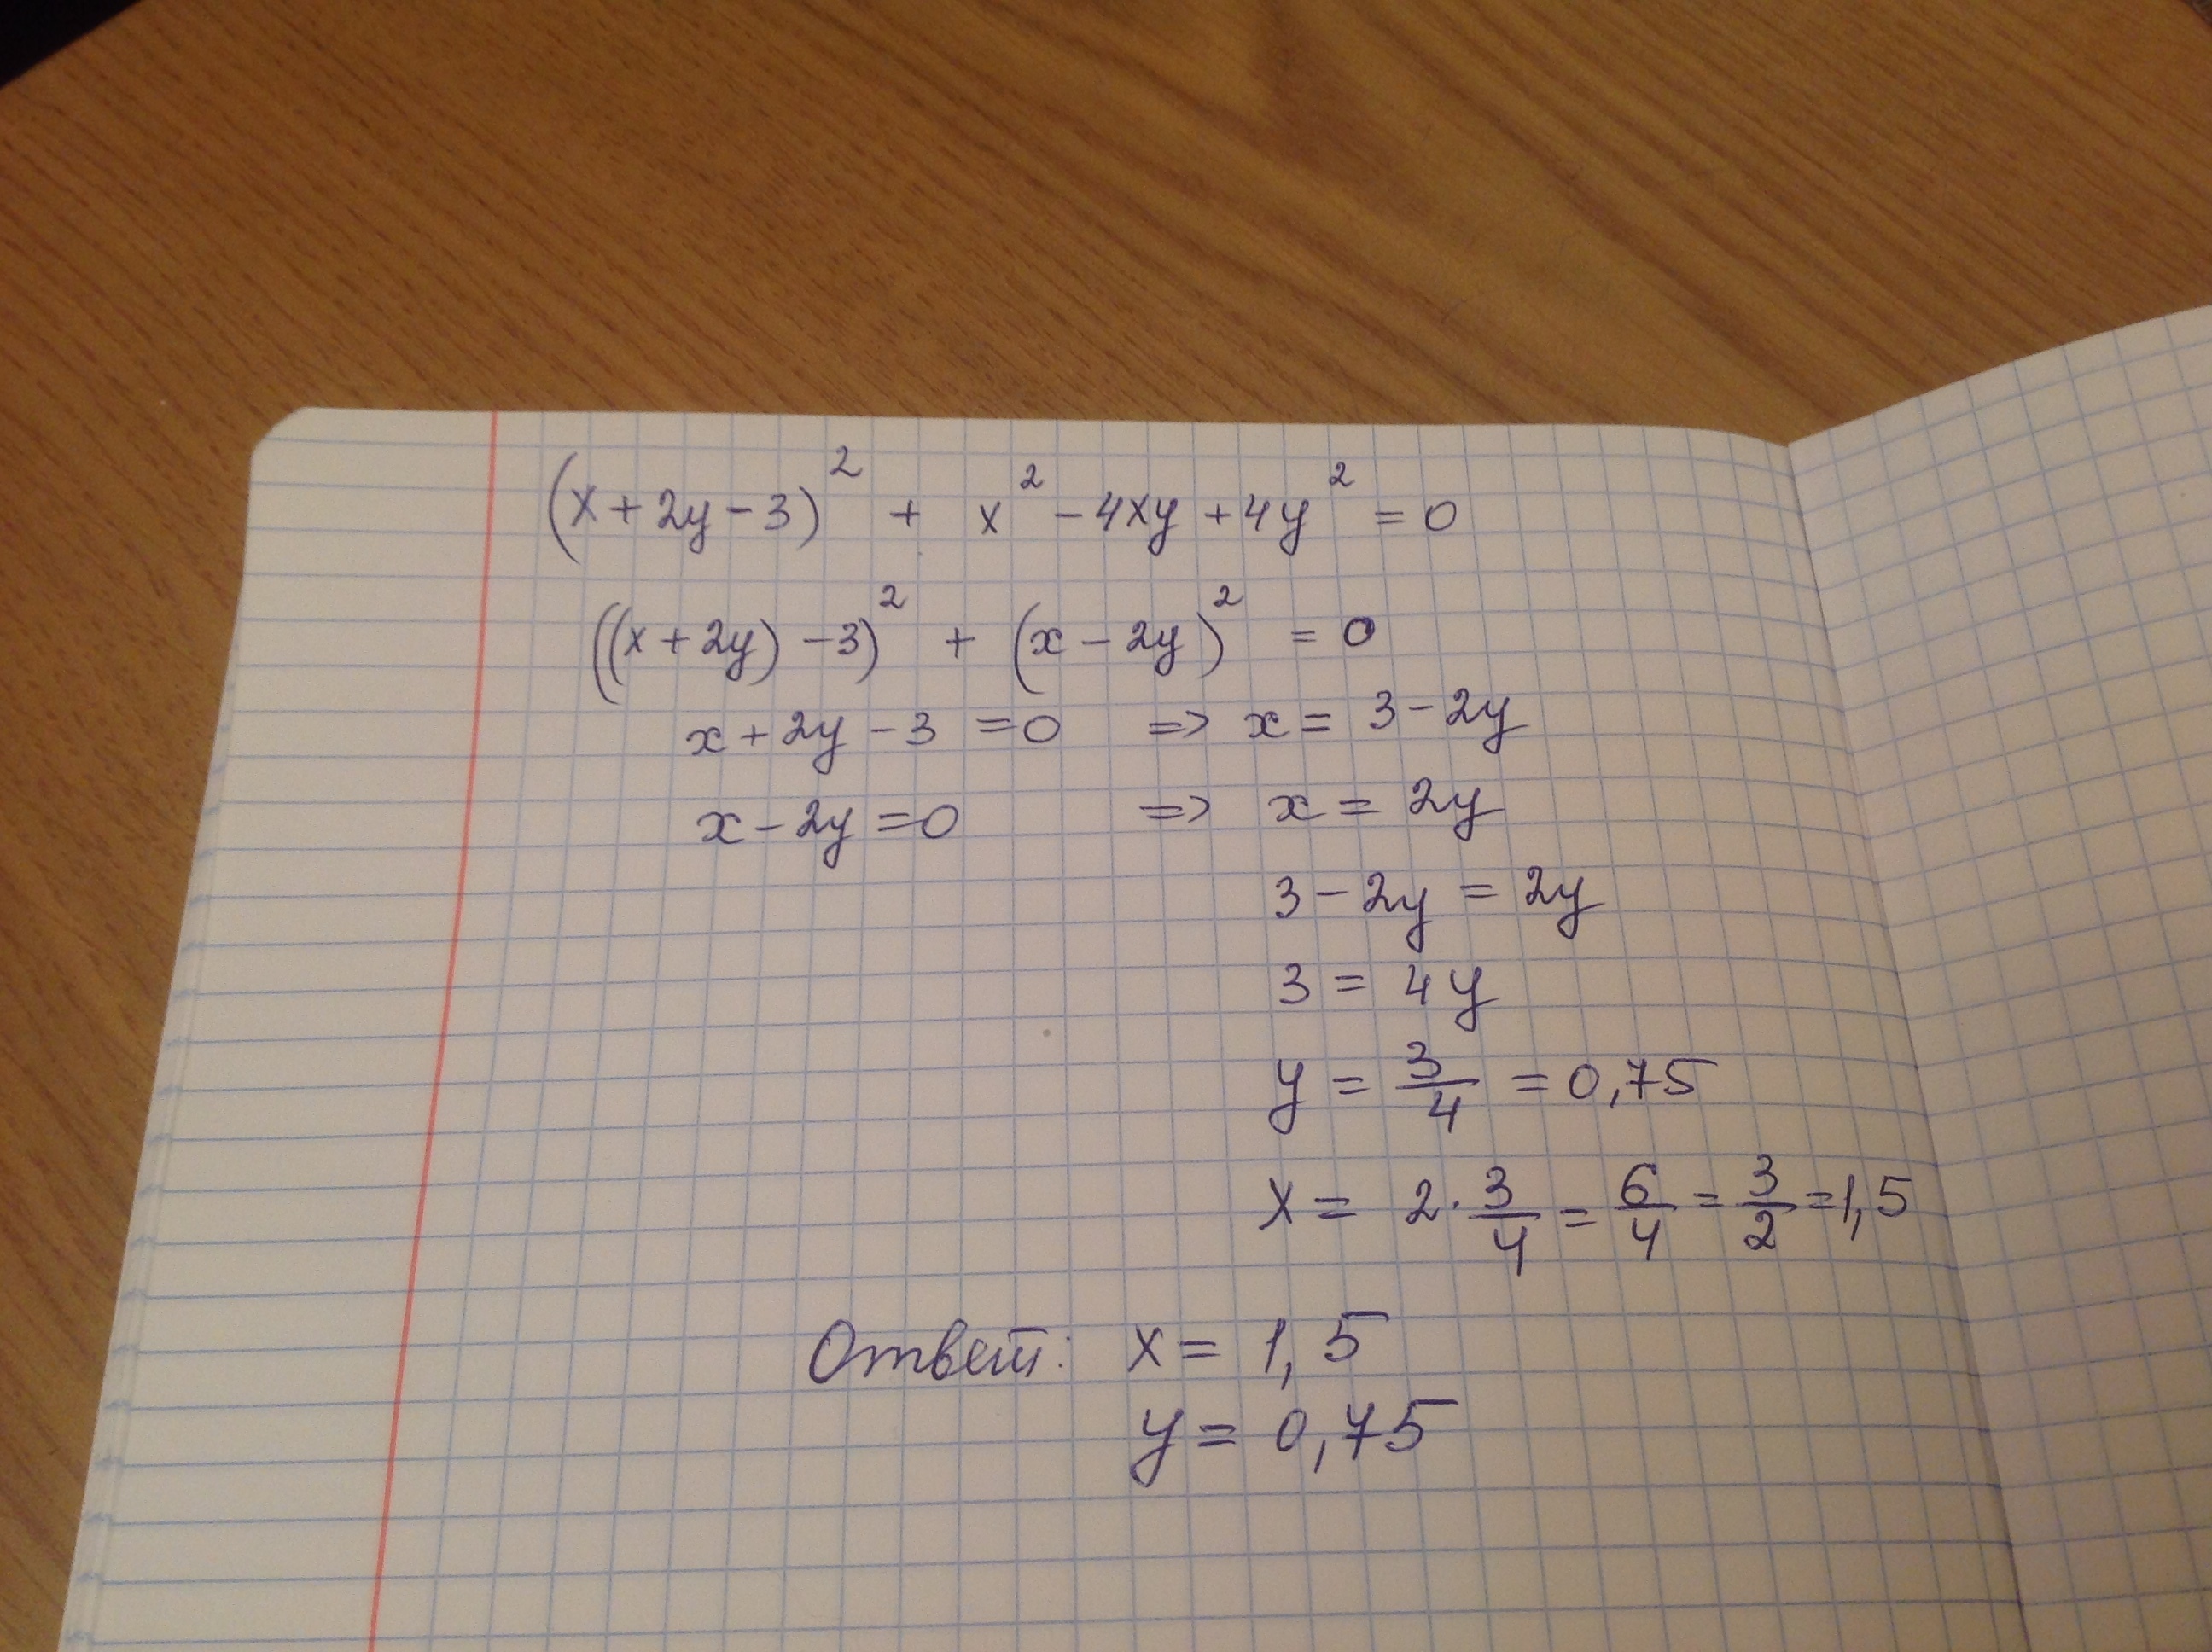 (x+2y-3)² + x² - 4xy + 4y² = 0
((x+2y) -3)² + (x-2y)² = 0
x+2y-3 = 0 => x = 3-2y
x-2y = 0 => x = 2y
3-2y = 2y
3 = 4y
y = 3/4 = 0,75
x = 2·3/4 = 6/4 = 3/2 = 1,5
Ответ: x = 1,5
y = 0,75